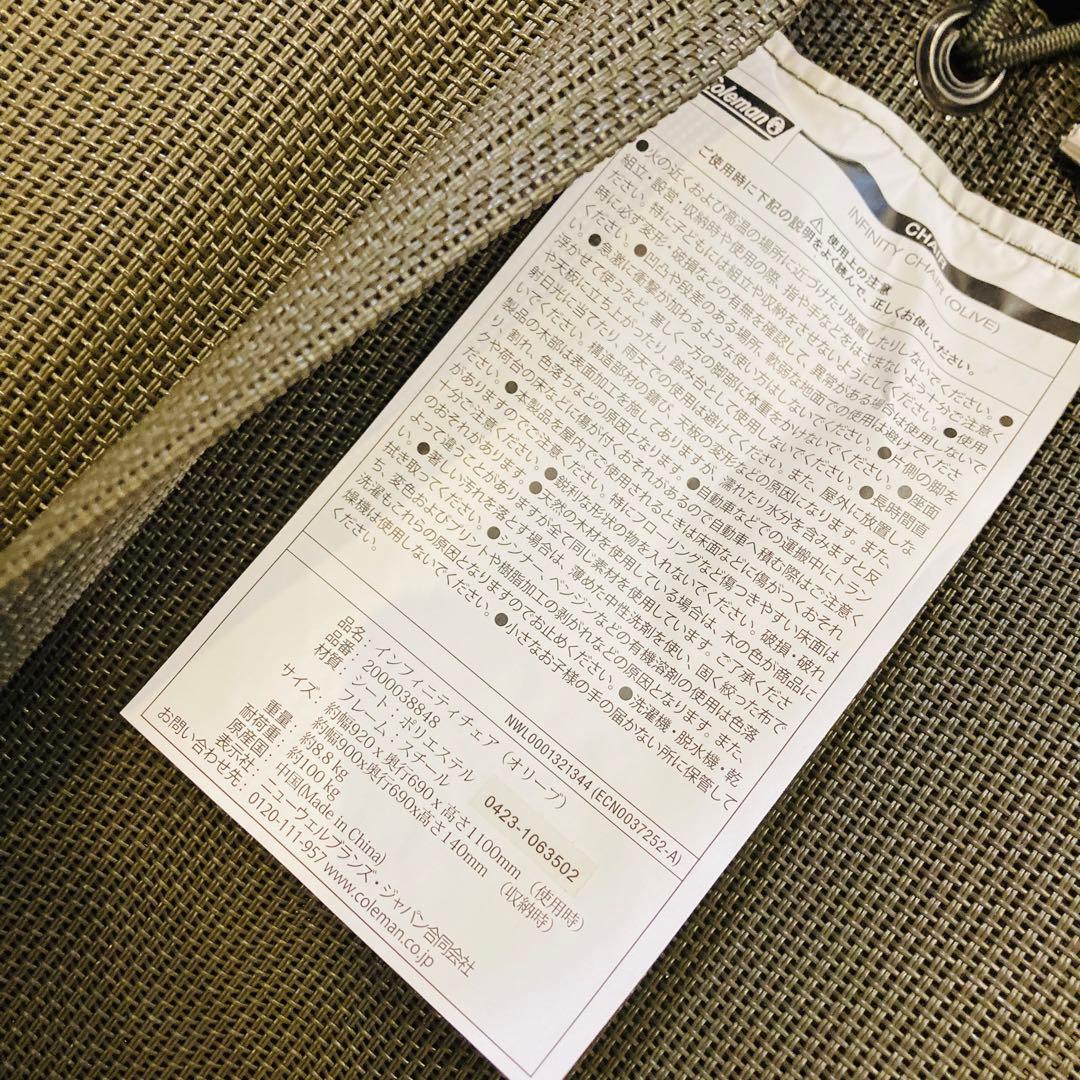 Coleman
CHAIR
INFINITY CHAIR (OLIVE)
⚠ 使用上の注意
ご使用時に下記の説明をよく読んで、正しくお使いください。
●火の近くおよび高温の場所に近づけたり放置したりしないでください。●
組立・設営・収納時や使用の際、指や手などをはさまないよう十分ご注意く
ださい。特に子どもには組立や収納をさせないようにしてください。●使用
時に必ず変形・破損などの有無を確認して、異常がある場合は使用しないで
ください。●凹凸や段差のある場所、軟弱な地面での使用は避けてくださ
い。●急激に衝撃が加わるような使い方はしないでください。●片側の脚を
浮かせて使うなど、著しく一方の脚部に体重をかけないでください。●座面
や天板に立ち上がったり、踏み台として使用しないでください。●長時間直
射日光に当てたり、雨天での使用は避けてください。また、屋外に放置しな
いでください。構造部材の錆び、天板の変形などの原因になります。また、
製品の木部は表面加工を施してありますが、濡れたり水分を含みますと反
り、割れ、色落ちなどの原因となります。●自動車などでの運搬中にトラン
クや荷台の床などに傷が付くおそれがあるので自動車へ積む際はご注意く
ださい。●本製品を屋内でご使用されるときは床面などに傷がつくおそれ
がありますのでご注意ください。特にフローリングなど傷つきやすい床面は
十分ご注意ください。●鋭利な形状の物を入れないでください。破損、破れ
のおそれがあります。●天然の木材を使用している場合は、木の色が商品に
よって違うことがありますが全て同じ素材を使用しています。ご了承くださ
い。●著しい汚れを落とす場合は、薄めた中性洗剤を使い、固く絞った布で
拭き取ってください。●シンナー、ベンジンなどの有機溶剤の使用は色落
ち、変色およびプリントや樹脂加工の剥がれなどの原因となります。また、
洗濯もこれらの原因となりますのでお止めください。●洗濯機・脱水機・乾
燥機は使用しないでください。●小さなお子様の手の届かない所に保管して
ください。
NWL0001321344 (ECN0037252-A)
品名：インフィニティチェア（オリーブ）
品番：2000038848
材質：シート・ポリエステル
フレーム：スチール
0423-1063502
サイズ：約幅920 x 奥行690 x 高さ1100mm（使用時）
約幅900x奥行690x高さ140mm（収納時）
重量：約8.8 kg
耐荷重：約100 kg
原産国：中国(Made in China)
表示社：ニューウェルブランズ・ジャパン合同会社
お問い合わせ先：0120-111-957 www.coleman.co.jp